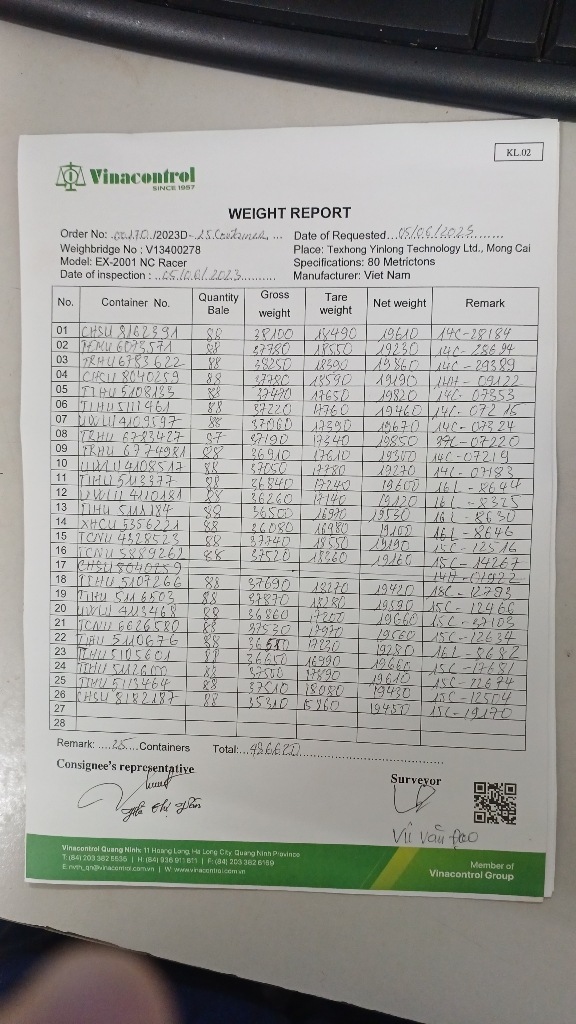 KL.02
Vinacontrol
SINCE 1957
WEIGHT REPORT
Order No: 00170/2023D-25 Container
Date of Requested 05/06/2023
Weighbridge No : V13400278
Place: Texhong Yinlong Technology Ltd., Mong Cai
Model: EX-2001 NC Racer
Specifications: 80 Metrictons
Date of inspection : 05/06/2023
Manufacturer: Viet Nam
No. Container No. Quantity Bale Gross weight Tare weight Net weight Remark
01 CHSU 8162391 88 38100 18490 19610 14C-28184
02 6093571 88 37780 18550 19230 14C-28694
03 TRHU 6783622 88 38250 18390 19860 14C-29389
04 CHSU 8040259 88 37780 18590 19190 14H-09122
05 TIHU 5108133 88 37490 17650 19820 14C-07353
06 TIHU 5111461 88 37220 17760 19460 14C-07215
07 UWLU 4109597 88 37060 17390 19670 14C-07324
08 TRHU 6783427 87 37190 17340 19850 07220
09 TRHU 6774981 88 36910 17610 19300 14C-07219
10 UWLU 4108517 88 37050 17780 19270 14C-07183
11 TIHU 5113377 88 36840 17240 19600 16L-8644
12 UWLU 4110181 88 36260 17140 19120 16L-8375
13 TIHU 88 36500 16970 19530 16L-8630
14 XHCU 5356221 88 36080 16980 19100 16L-8646
15 TCNU 4328523 88 37740 18550 19190 15C-12516
16 TCNU 5889262 88 37520 18360 19160 15C-14267
17 CHSU 8040259
18 TIHU 5107266 88 37690 18270 19420 12793
19 TIHU 5116503 88 37870 18280 19590 15C-12466
20 UWLU 4113468 88 36860 17200 19660 15C-37103
21 TCNU 6626580 88 37530 17970 19560 15C-12634
22 TIHU 5110676 88 36510 17230 19280 16L-8682
23 TIHU 5105601 87 36650 16990 19660 15C-17681
24 TIHU 88 37500 17890 19610 15C-12674
25 TIHU 5113464 88 37510 18080 19430 15C-12504
26 CHSU 8182187 88 35310 15860 19450 15C-19170
27
28
Remark: 25 Containers Total: 486620
Consignee's representative
Surveyor
Vũ Văn Đạo
Vinacontrol Quang Ninh: 11 Hoang Long, Ha Long City, Quang Ninh Province
T: (84) 203 382 5535 | H: (84) 936 911 811 | F: (84) 203 382 6159
E: nvth_qn@vinacontrol.com.vn | W: www.vinacontrol.com.vn
Member of
Vinacontrol Group